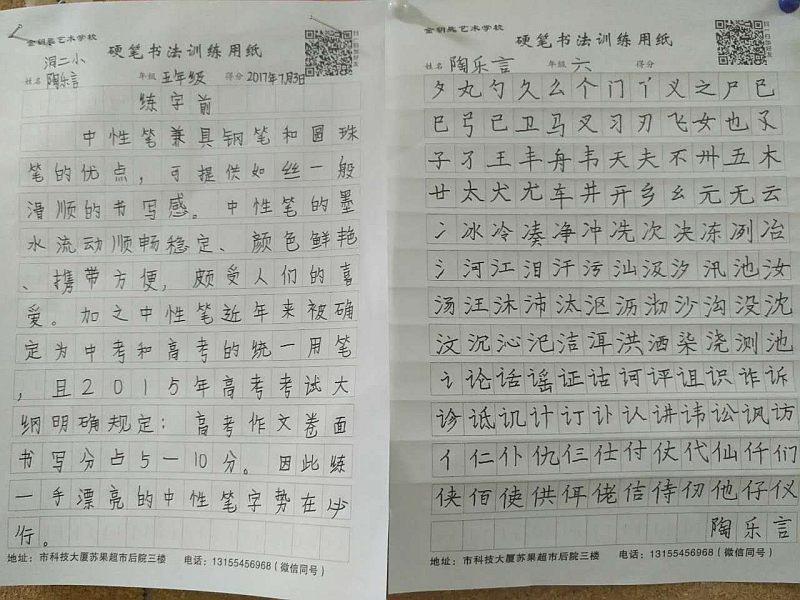 金钥匙艺术学校
硬笔书法训练用纸
洞二小
姓名 陶乐言 年级 五年级 得分 2017年7月3日
练字前
中性笔兼具钢笔和圆珠
笔的优点，可提供如丝一般
滑顺的书写感。中性笔的墨
水流动顺畅稳定、颜色鲜艳
、携带方便，颇受人们的喜
爱。加之中性笔近年来被确
定为中考和高考的统一用笔
，且2015年高考考试大
纲明确规定：高考作文卷面
书写分占5一10分。因此练
一手漂亮的中性笔字势在必
行。
地址：市科技大厦苏果超市后院三楼 电话：13155456968（微信同号）
金钥匙艺术学校
硬笔书法训练用纸
姓名 陶乐言 年级 六 得分
夕丸勺久么个门丫义之尸巳
巳弓己卫马叉习刃飞女也孓
子孑王丰舟韦天夫不卅五木
廿太犬尤车井开乡幺元无云
冫冰冷凑净冲冼次决冻冽冶
氵河江泪汗污汕汲汐汛池汝
汤汪沐沛汰沤沥沏沙沟没沈
汶沉沁汜洁洱洪洒染浇测池
讠论话谣证诂诃评诅识诈诉
诊诋讥计订讣认讲讳讼讽访
亻仁仆仇仨仕付仗代仙仟们
侠佰使供佴佬信侍仞他仔仪
陶乐言
地址：市科技大厦苏果超市后院三楼 电话：13155456968（微信同号）